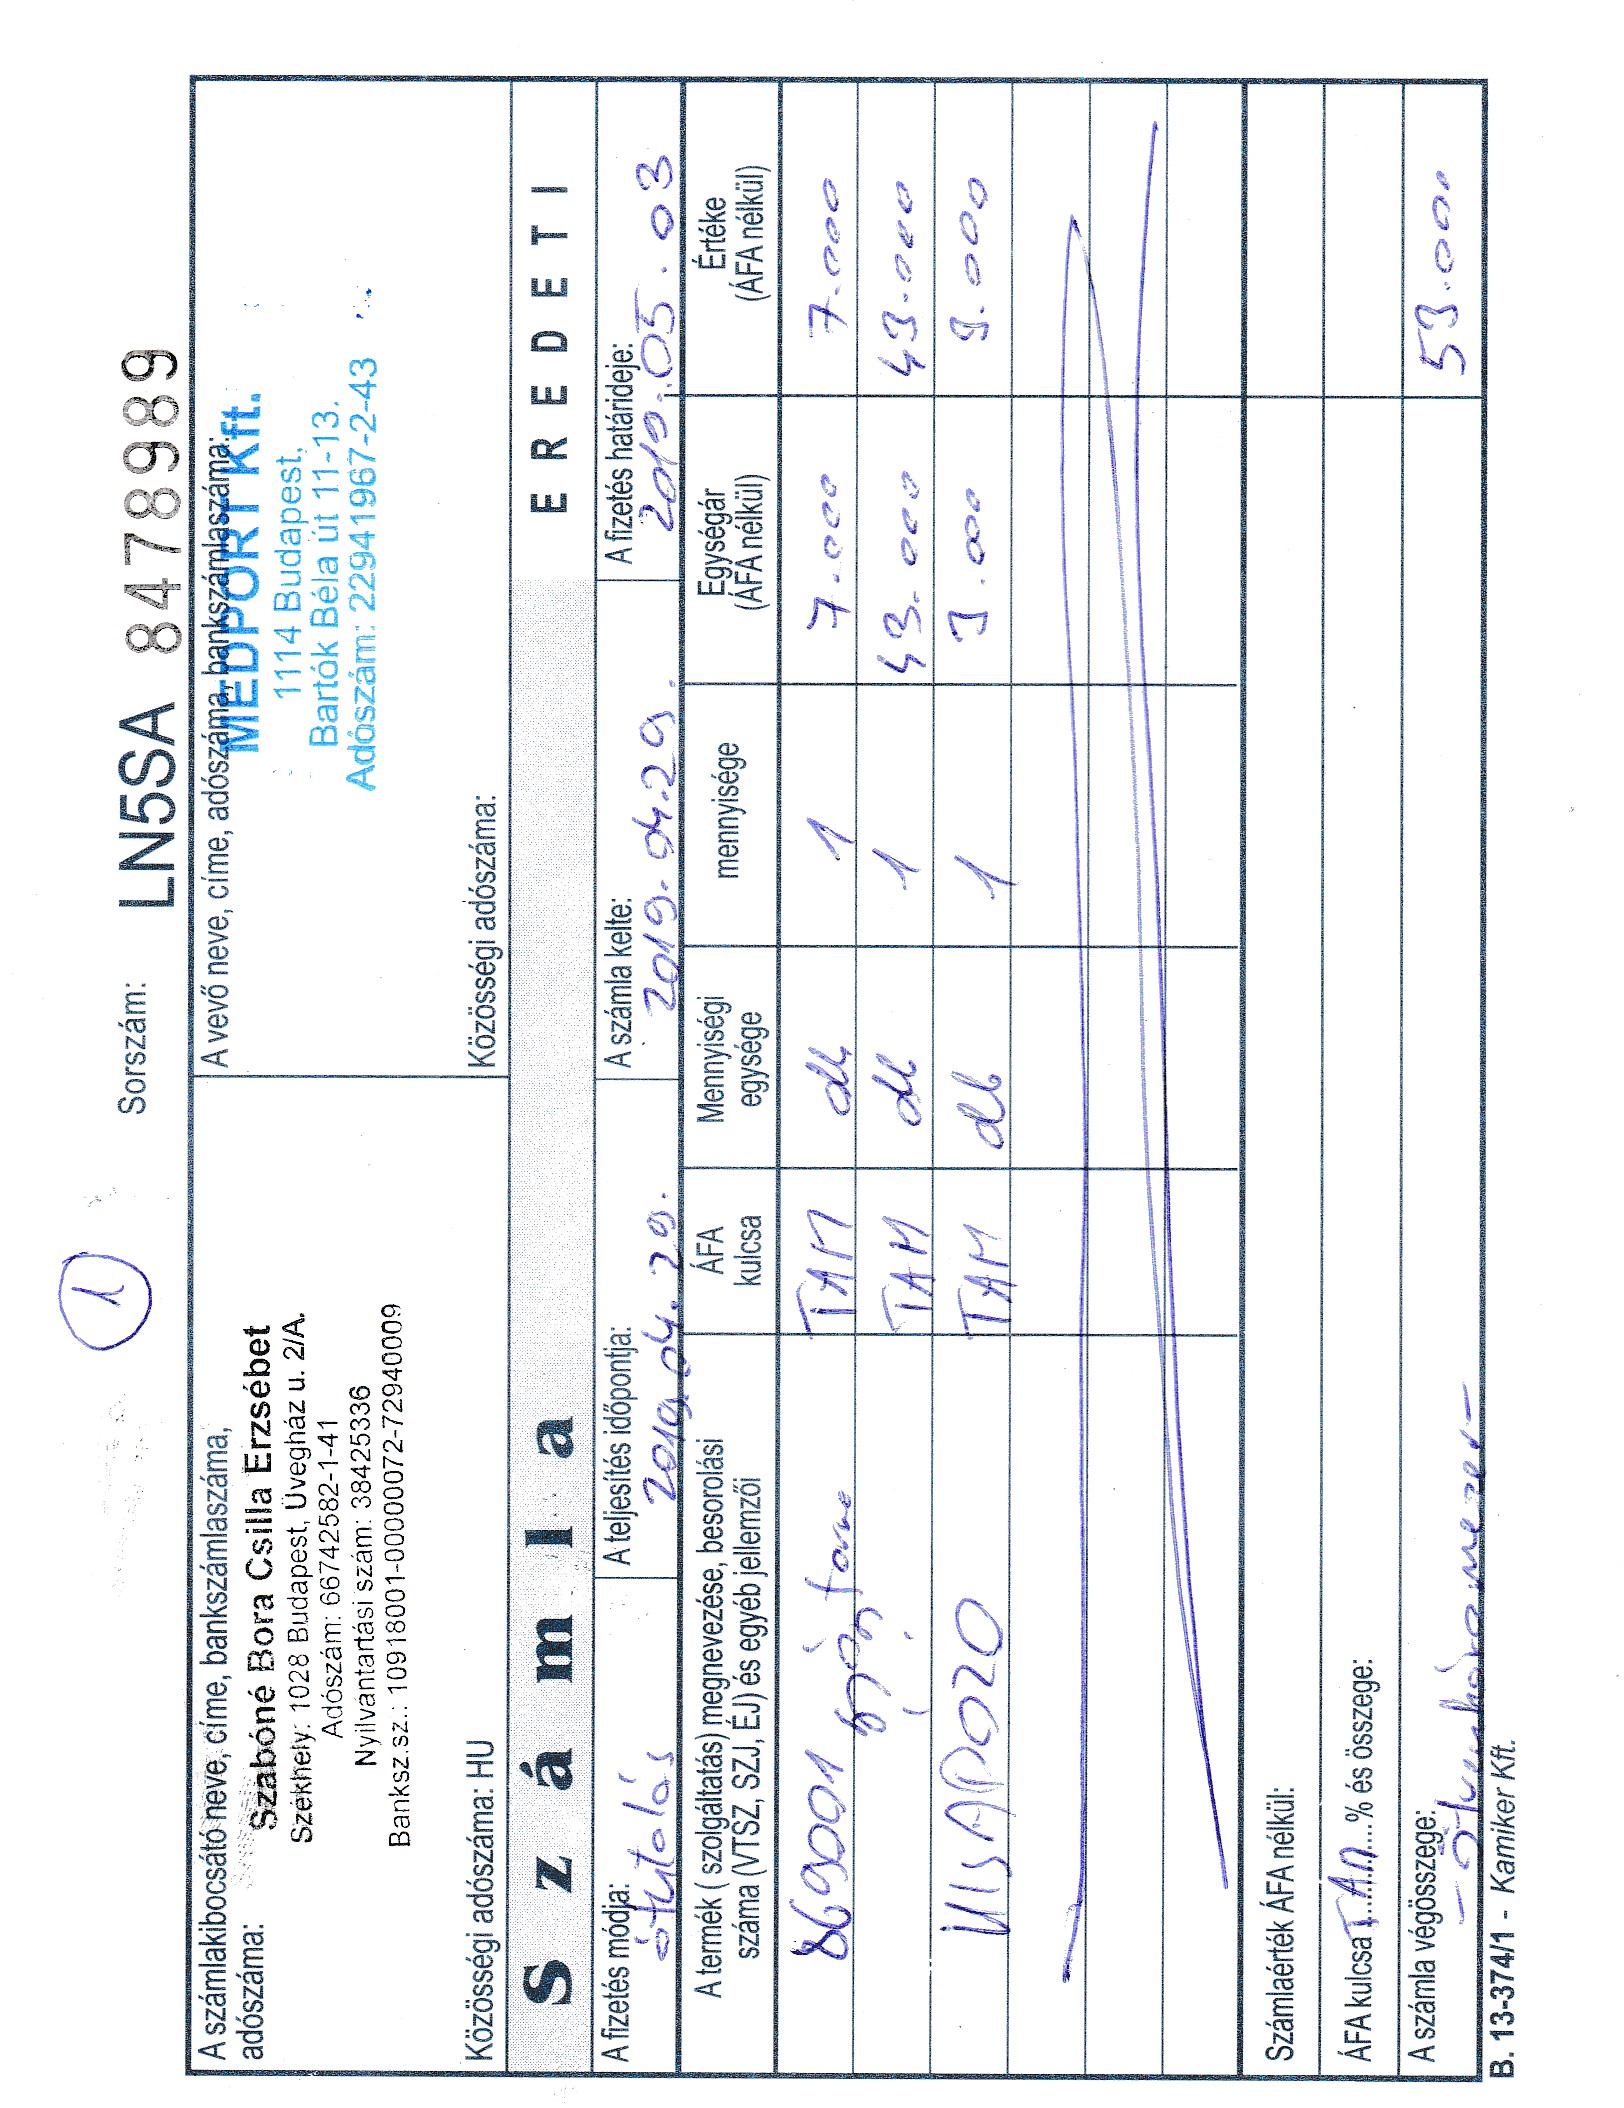 1
Sorszám: LN5SA 8478989
A számlakibocsátó neve, címe, bankszámlaszáma,
adószáma:
Szabóné Bora Csilla Erzsébet
Székhely: 1028 Budapest, Üvegház u. 2/A.
Adószám: 66742582-1-41
Nyilvántartási szám: 38425336
Banksz.sz.: 10918001-00000072-72940009
Közösségi adószáma: HU
A vevő neve, címe, adószáma, bankszámlaszáma:
MEDPORT Kft.
1114 Budapest,
Bartók Béla út 11-13.
Adószám: 22941967-2-43
Közösségi adószáma:
Számla
EREDETI
A fizetés módja:
átutalás
A teljesítés időpontja:
2019.04.29.
A számla kelte:
2019.04.29.
A fizetés határideje:
2019.05.03
A termék ( szolgáltatás) megnevezése, besorolási
száma (VTSZ, SZJ, ÉJ) és egyéb jellemzői
ÁFA
kulcsa
Mennyiségi
egysége
mennyisége
Egységár
(ÁFA nélkül)
Értéke
(ÁFA nélkül)
869001 TAM db 1 7.000 7.000
TAM db 1 43.000 43.000
TAM db 1 3.000 3.000
Számlaérték ÁFA nélkül:
ÁFA kulcsa T.A.M....% és összege:
A számla végösszege: 53.000.
- Ötvenháromezer -
B. 13-374/1 - Kamiker Kft.